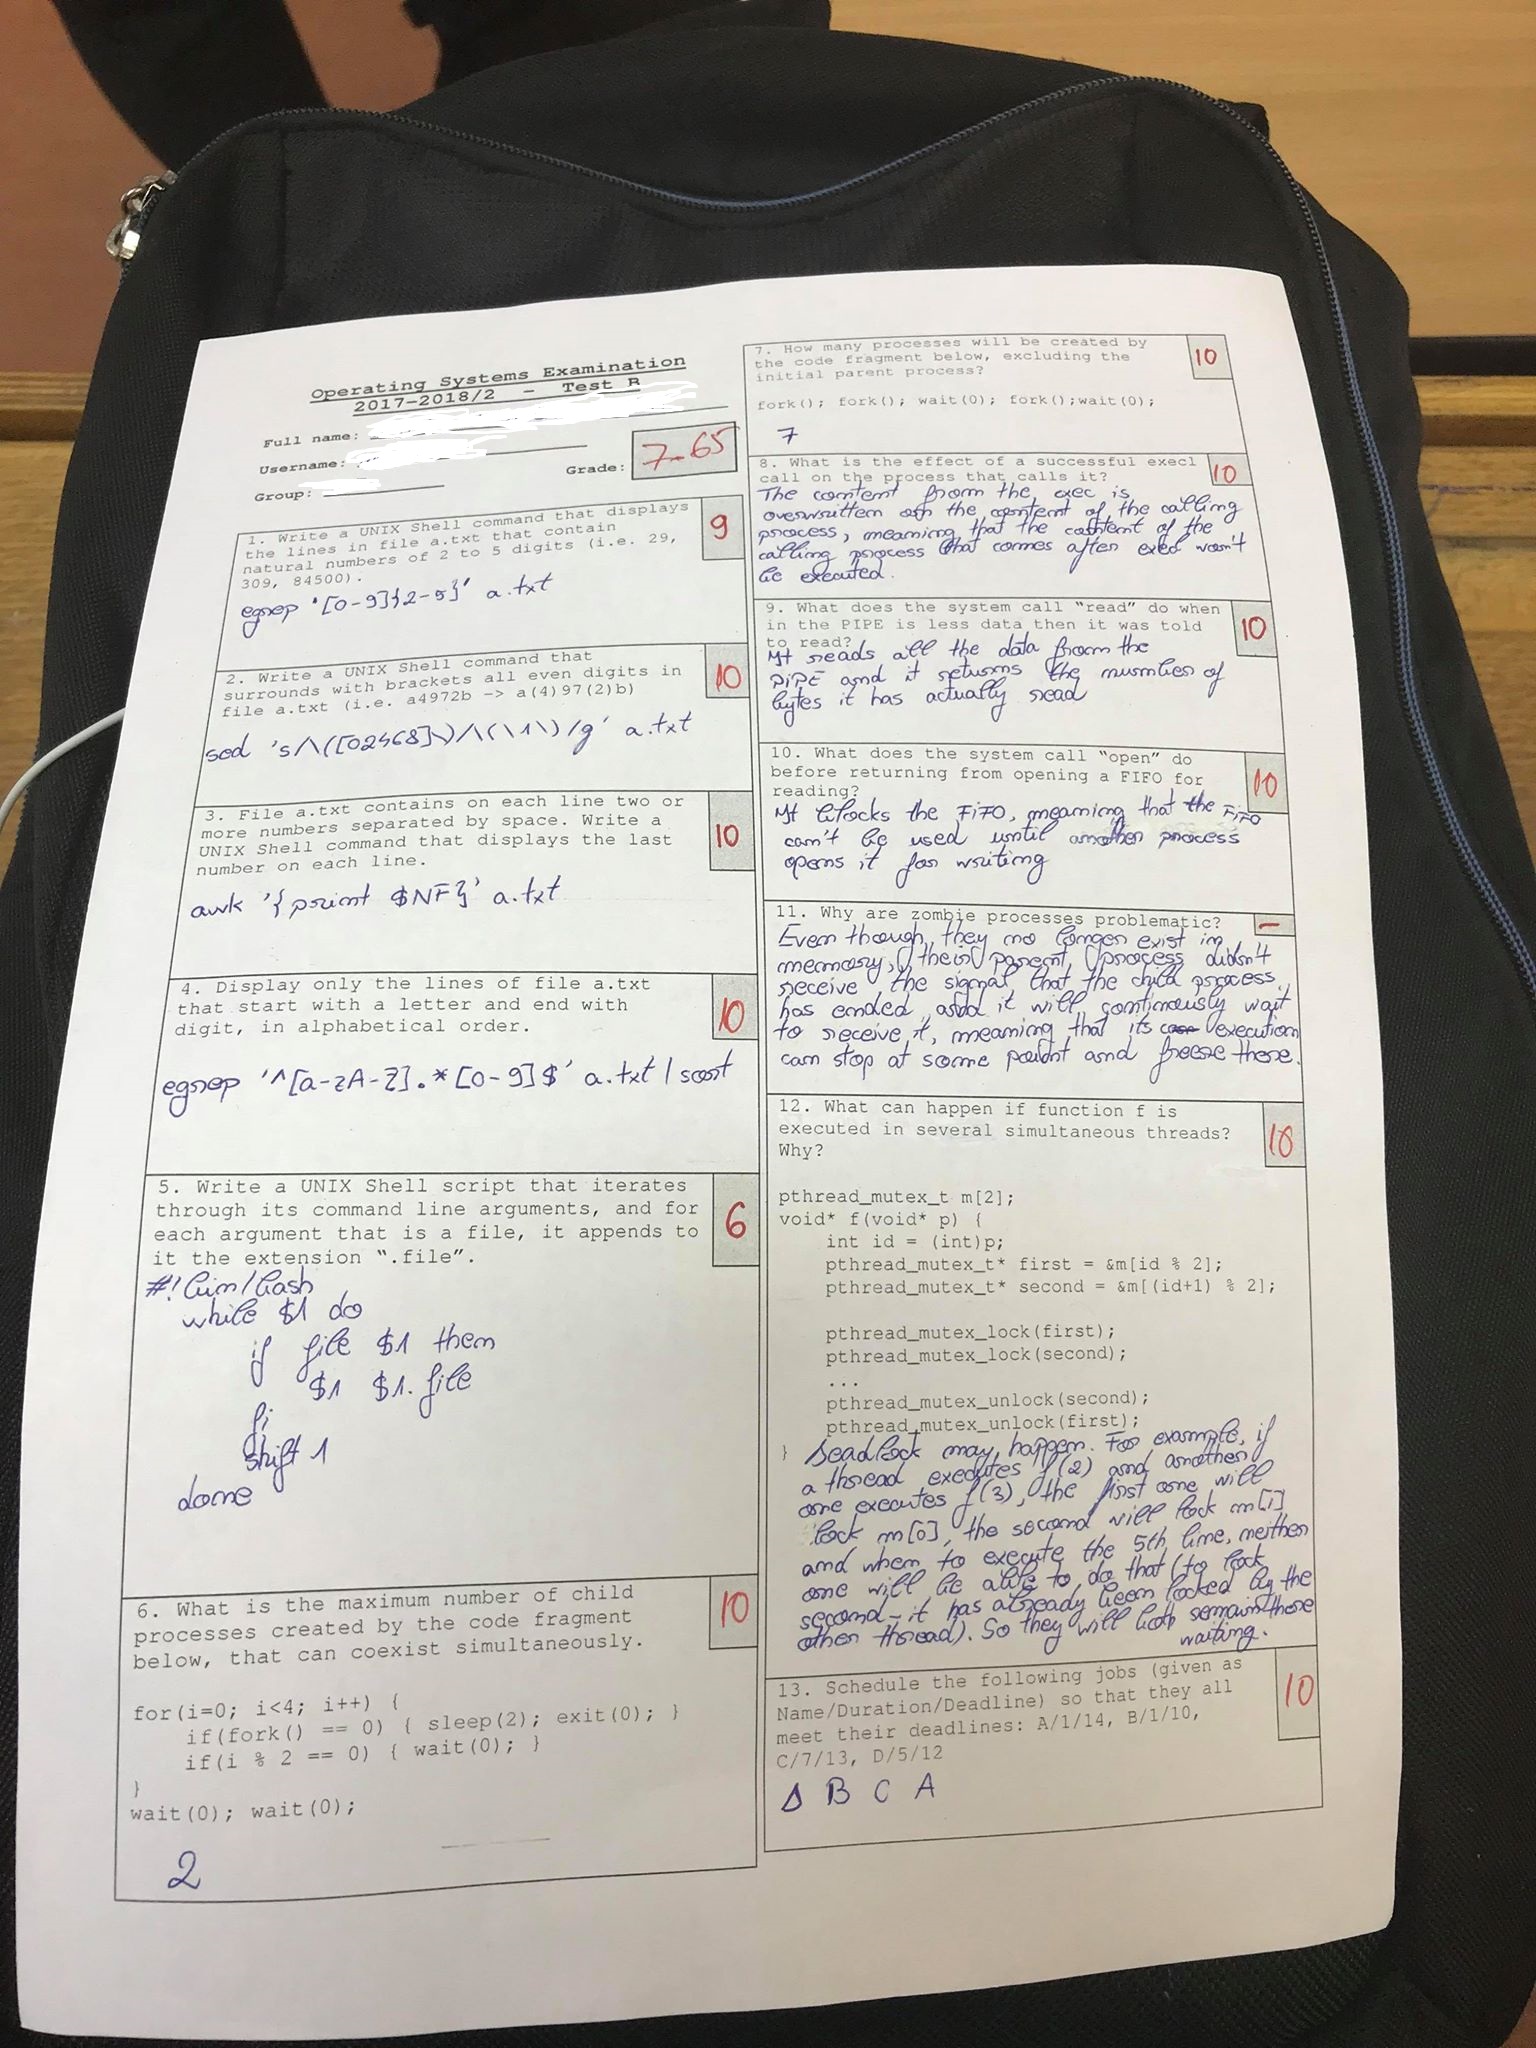 Operating Systems Examination
2017-2018/2 - Test B
Full name:
Username:
Grade: 7.65
Group:
1. Write a UNIX Shell command that displays
the lines in file a.txt that contain
natural numbers of 2 to 5 digits (i.e. 29,
309, 84500).
9
egrep '[0-9]{2-5}' a.txt
2. Write a UNIX Shell command that
surrounds with brackets all even digits in
file a.txt (i.e. a4972b -> a(4)97(2)b)
10
sed 's/\([02468]\)/\(\1\)/g' a.txt
3. File a.txt contains on each line two or
more numbers separated by space. Write a
UNIX Shell command that displays the last
number on each line.
10
awk '{print $NF}' a.txt
4. Display only the lines of file a.txt
that start with a letter and end with
digit, in alphabetical order.
10
egrep '^[a-zA-Z].*[0-9]$' a.txt | sort
5. Write a UNIX Shell script that iterates
through its command line arguments, and for
each argument that is a file, it appends to
it the extension ".file".
6
#!bin/bash
while $1 do
if file $1 then
$1 $1.file
fi
shift 1
done
6. What is the maximum number of child
processes created by the code fragment
below, that can coexist simultaneously.
10
for(i=0; i<4; i++) {
if(fork() == 0) { sleep(2); exit(0); }
if(i % 2 == 0) { wait(0); }
}
wait(0); wait(0);
2
7. How many processes will be created by
the code fragment below, excluding the
initial parent process?
10
fork(); fork(); wait(0); fork();wait(0);
7
8. What is the effect of a successful execl
call on the process that calls it?
10
The content from the exec is
overwritten on the content of the calling
process, meaning that the content of the
calling process that comes after exec won't
be executed.
9. What does the system call "read" do when
in the PIPE is less data then it was told
to read?
10
It reads all the data from the
PIPE and it returns the number of
bytes it has actually read
10. What does the system call "open" do
before returning from opening a FIFO for
reading?
10
It blocks the FIFO, meaning that the FIFO
can't be used until another process
opens it for writing
11. Why are zombie processes problematic?
-
Even though they no longer exist in
memory, their parent process didn't
receive the signal that the child process
has ended and it will continously wait
to receive it, meaning that its execution
can stop at some point and freeze there.
12. What can happen if function f is
executed in several simultaneous threads?
Why?
10
pthread_mutex_t m[2];
void* f(void* p) {
int id = (int)p;
pthread_mutex_t* first = &m[id % 2];
pthread_mutex_t* second = &m[(id+1) % 2];
pthread_mutex_lock(first);
pthread_mutex_lock(second);
...
pthread_mutex_unlock(second);
pthread_mutex_unlock(first);
} Deadlock may happen. For example, if
a thread executes f(2) and another
one executes f(3), the first one will
lock m[0], the second will lock m[1]
and when to execute the 5th line, neither
one will be able to do that (to lock
second - it has already been locked by the
other thread). So they will both remain there
waiting.
13. Schedule the following jobs (given as
Name/Duration/Deadline) so that they all
meet their deadlines: A/1/14, B/1/10,
C/7/13, D/5/12
10
D B C A